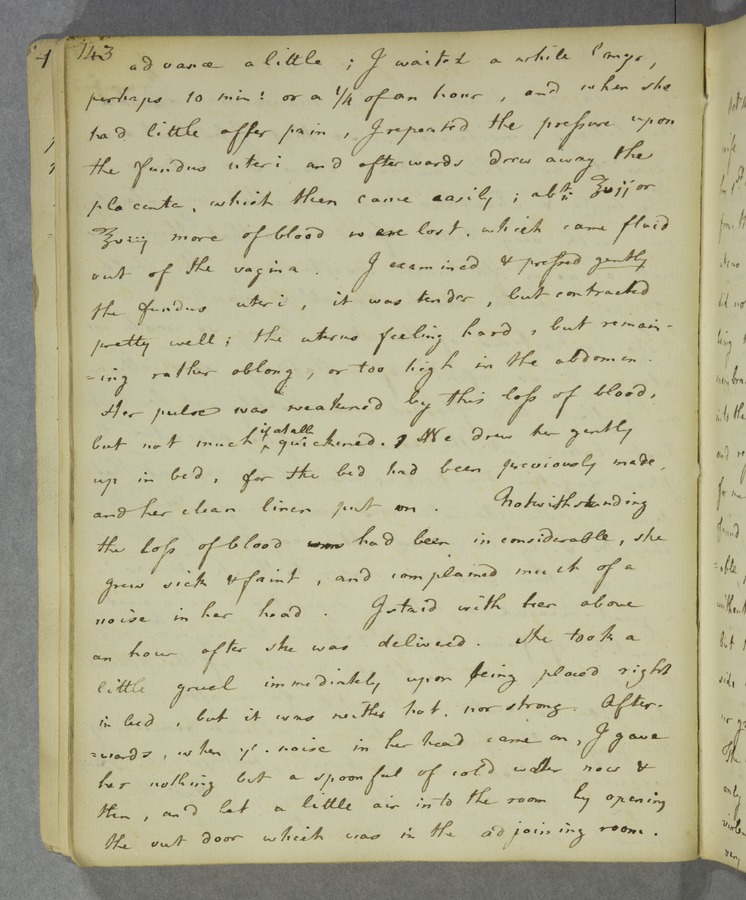 143
advance a little ; I waited a while longr,
perhaps 10 min: or a 1/4 of an hour , and when she
had little after pain , I repeated the preſsure upon
the fundus uteri and afterwards drew away the
placenta, which then came easily ; abt ʒvjj or
ʒviij more of blood were lost, which came fluid
out of the vagina . I examined & preſsed gently
the fundus uteri , it was tender , but contracted
pretty well ; the uterus feeling hard , but remain-
=ing rather oblong , or too high in the abdomen .
Her pulse was weakened by this loſs of blood,
but not much if at all quickened. We drew her gently
up in bed , for the bed had been previously made,
and her clean linen put on . Notwithstanding
the loſs of blood had been inconsiderable , she
grew sick & faint , and complained much of a
noise in her head . I staid with her above
an hour after she was delivered . She took a
little gruel immediately upon being placed right
in bed , but it was neither hot , nor strong . After-
=wards , when ye. noise in her head came on , I gave
her nothing but a spoonful of cold water now &
then , and let a little air into the room by opening
the out door which was in the adjoining room .